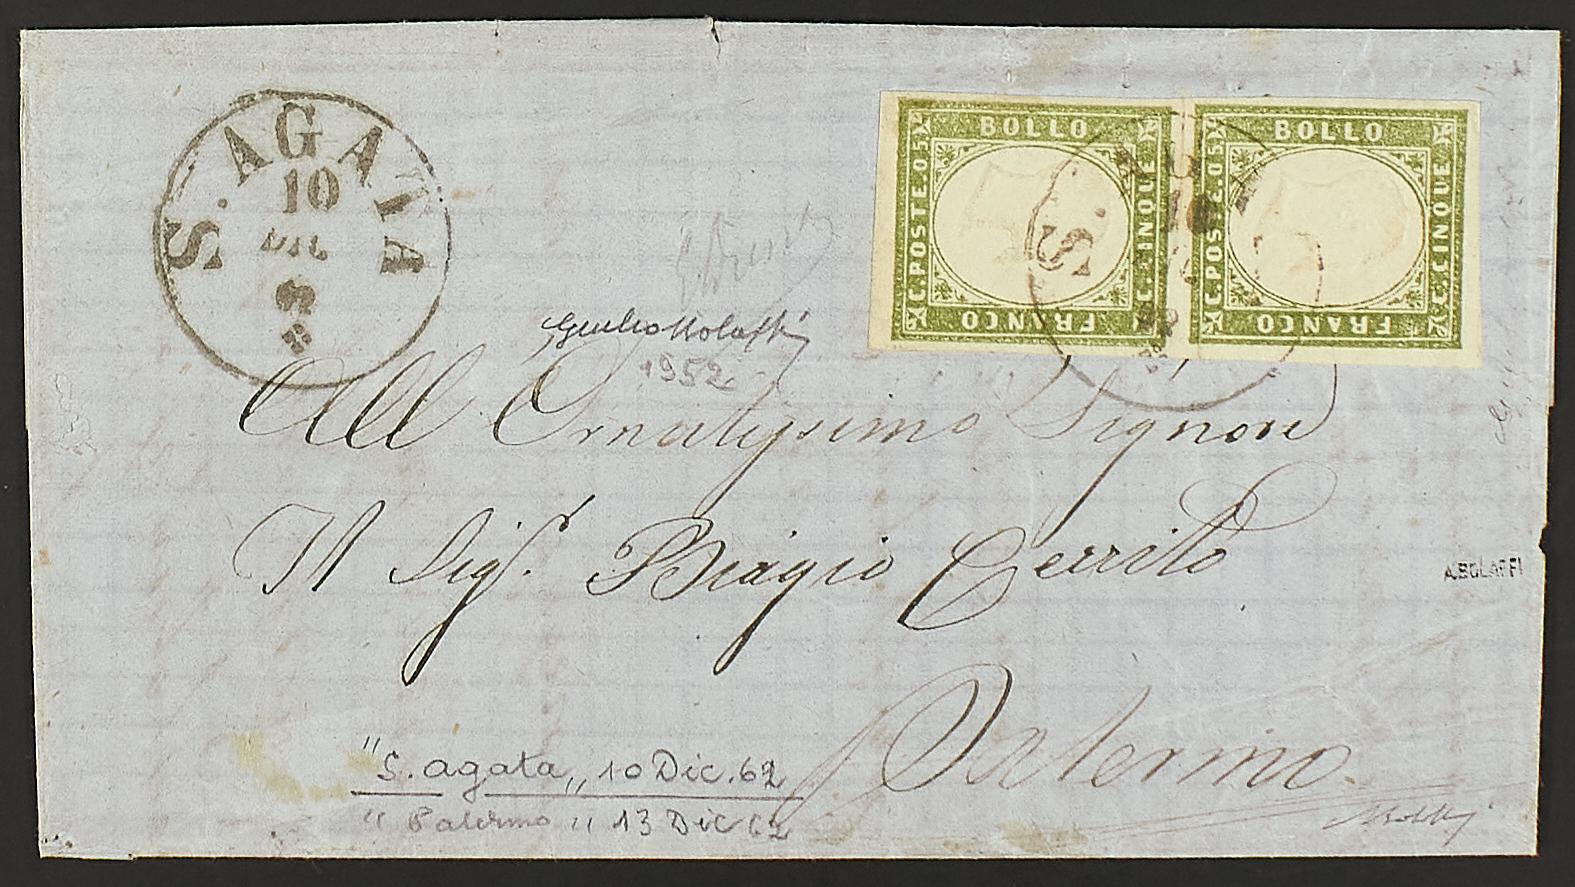 S. AGATA
10
DIC
62
BOLLO
C. POSTE. 05
C. CINQUE
FRANCO
BOLLO
C. POSTE. 05
C. CINQUE
FRANCO
S. AG
10
62
Giulio Bolaffi
1952
All Ornatissimo Signore
Il Sigr. Biagio Cerrito
A.BOLAFFI
Palermo
"S. agata" 10 Dic. 62
"Palermo" 13 Dic 62